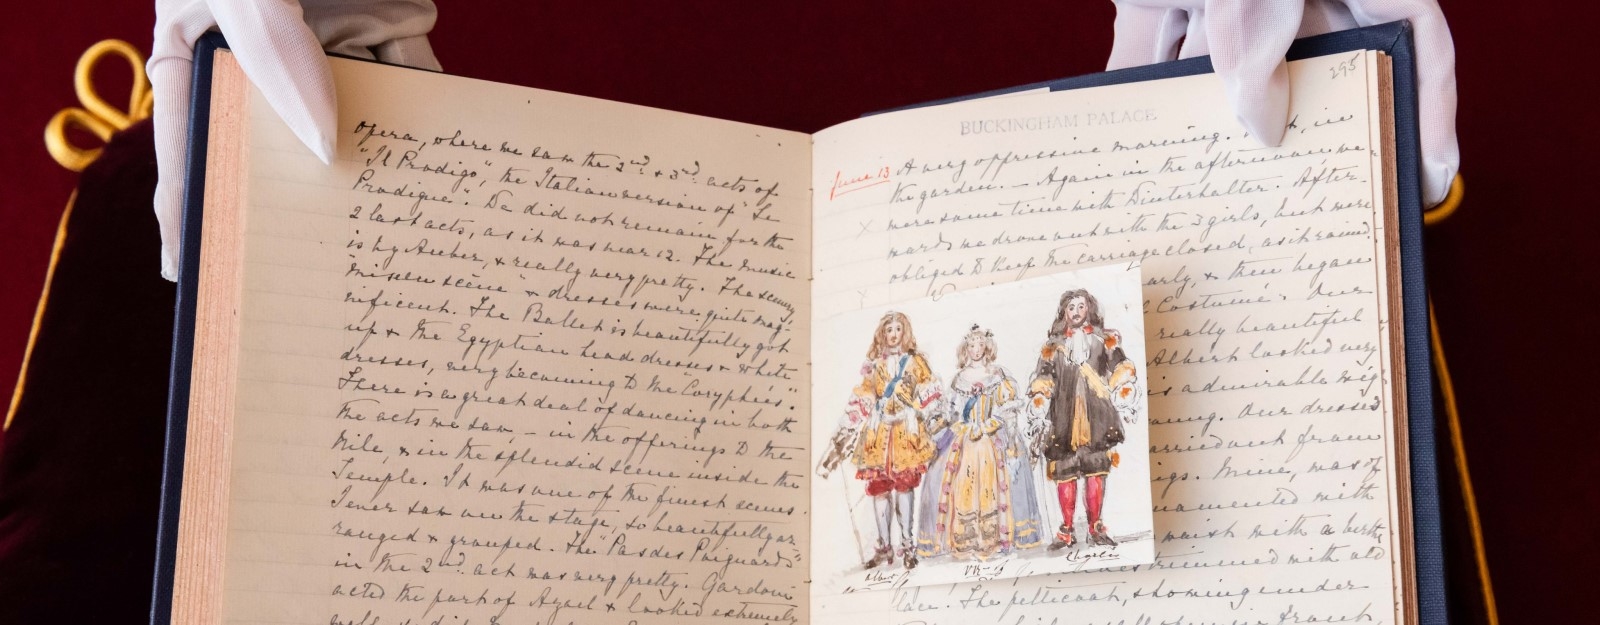 opera, where we saw the 2nd. & 3rd. acts of
"Il Prodigo", the Italian version of "Le
Prodigue". We did not remain for the
2 last acts, as it was near 12. The music
is by Auber, & really very pretty. The scenery,
"mise en scène" & dresses were quite mag-
nificent. The Ballet is beautifully got
up & the Egyptian head dresses & white
dresses, very becoming to the "Coryphées".
There is a great deal of dancing in both
the acts we saw, — in the offerings to the
Nile, & in the splendid scene inside the
Temple. It was one of the finest scenes
I ever saw on the stage, so beautifully ar-
ranged & grouped. The "Pas des Poignards"
in the 2nd. act was very pretty. Gardoni
acted the part of Azael & looked extremely
well
295
BUCKINGHAM PALACE
June 13 A very oppressive morning. in
the garden. — Again in the afternoon we
were some time with Winterhalter. After-
wards we drove out with the 3 girls, but were
obliged to keep the carriage closed, as it rained
early, & then began
Costumé". Our
really beautiful
Albert looked very
is admirable wig
Our dresses
carried out from
Mine, was of
ornamented with
waist with a
trimmed with old
Albert
VR
Charles
lace. The petticoat, showing under